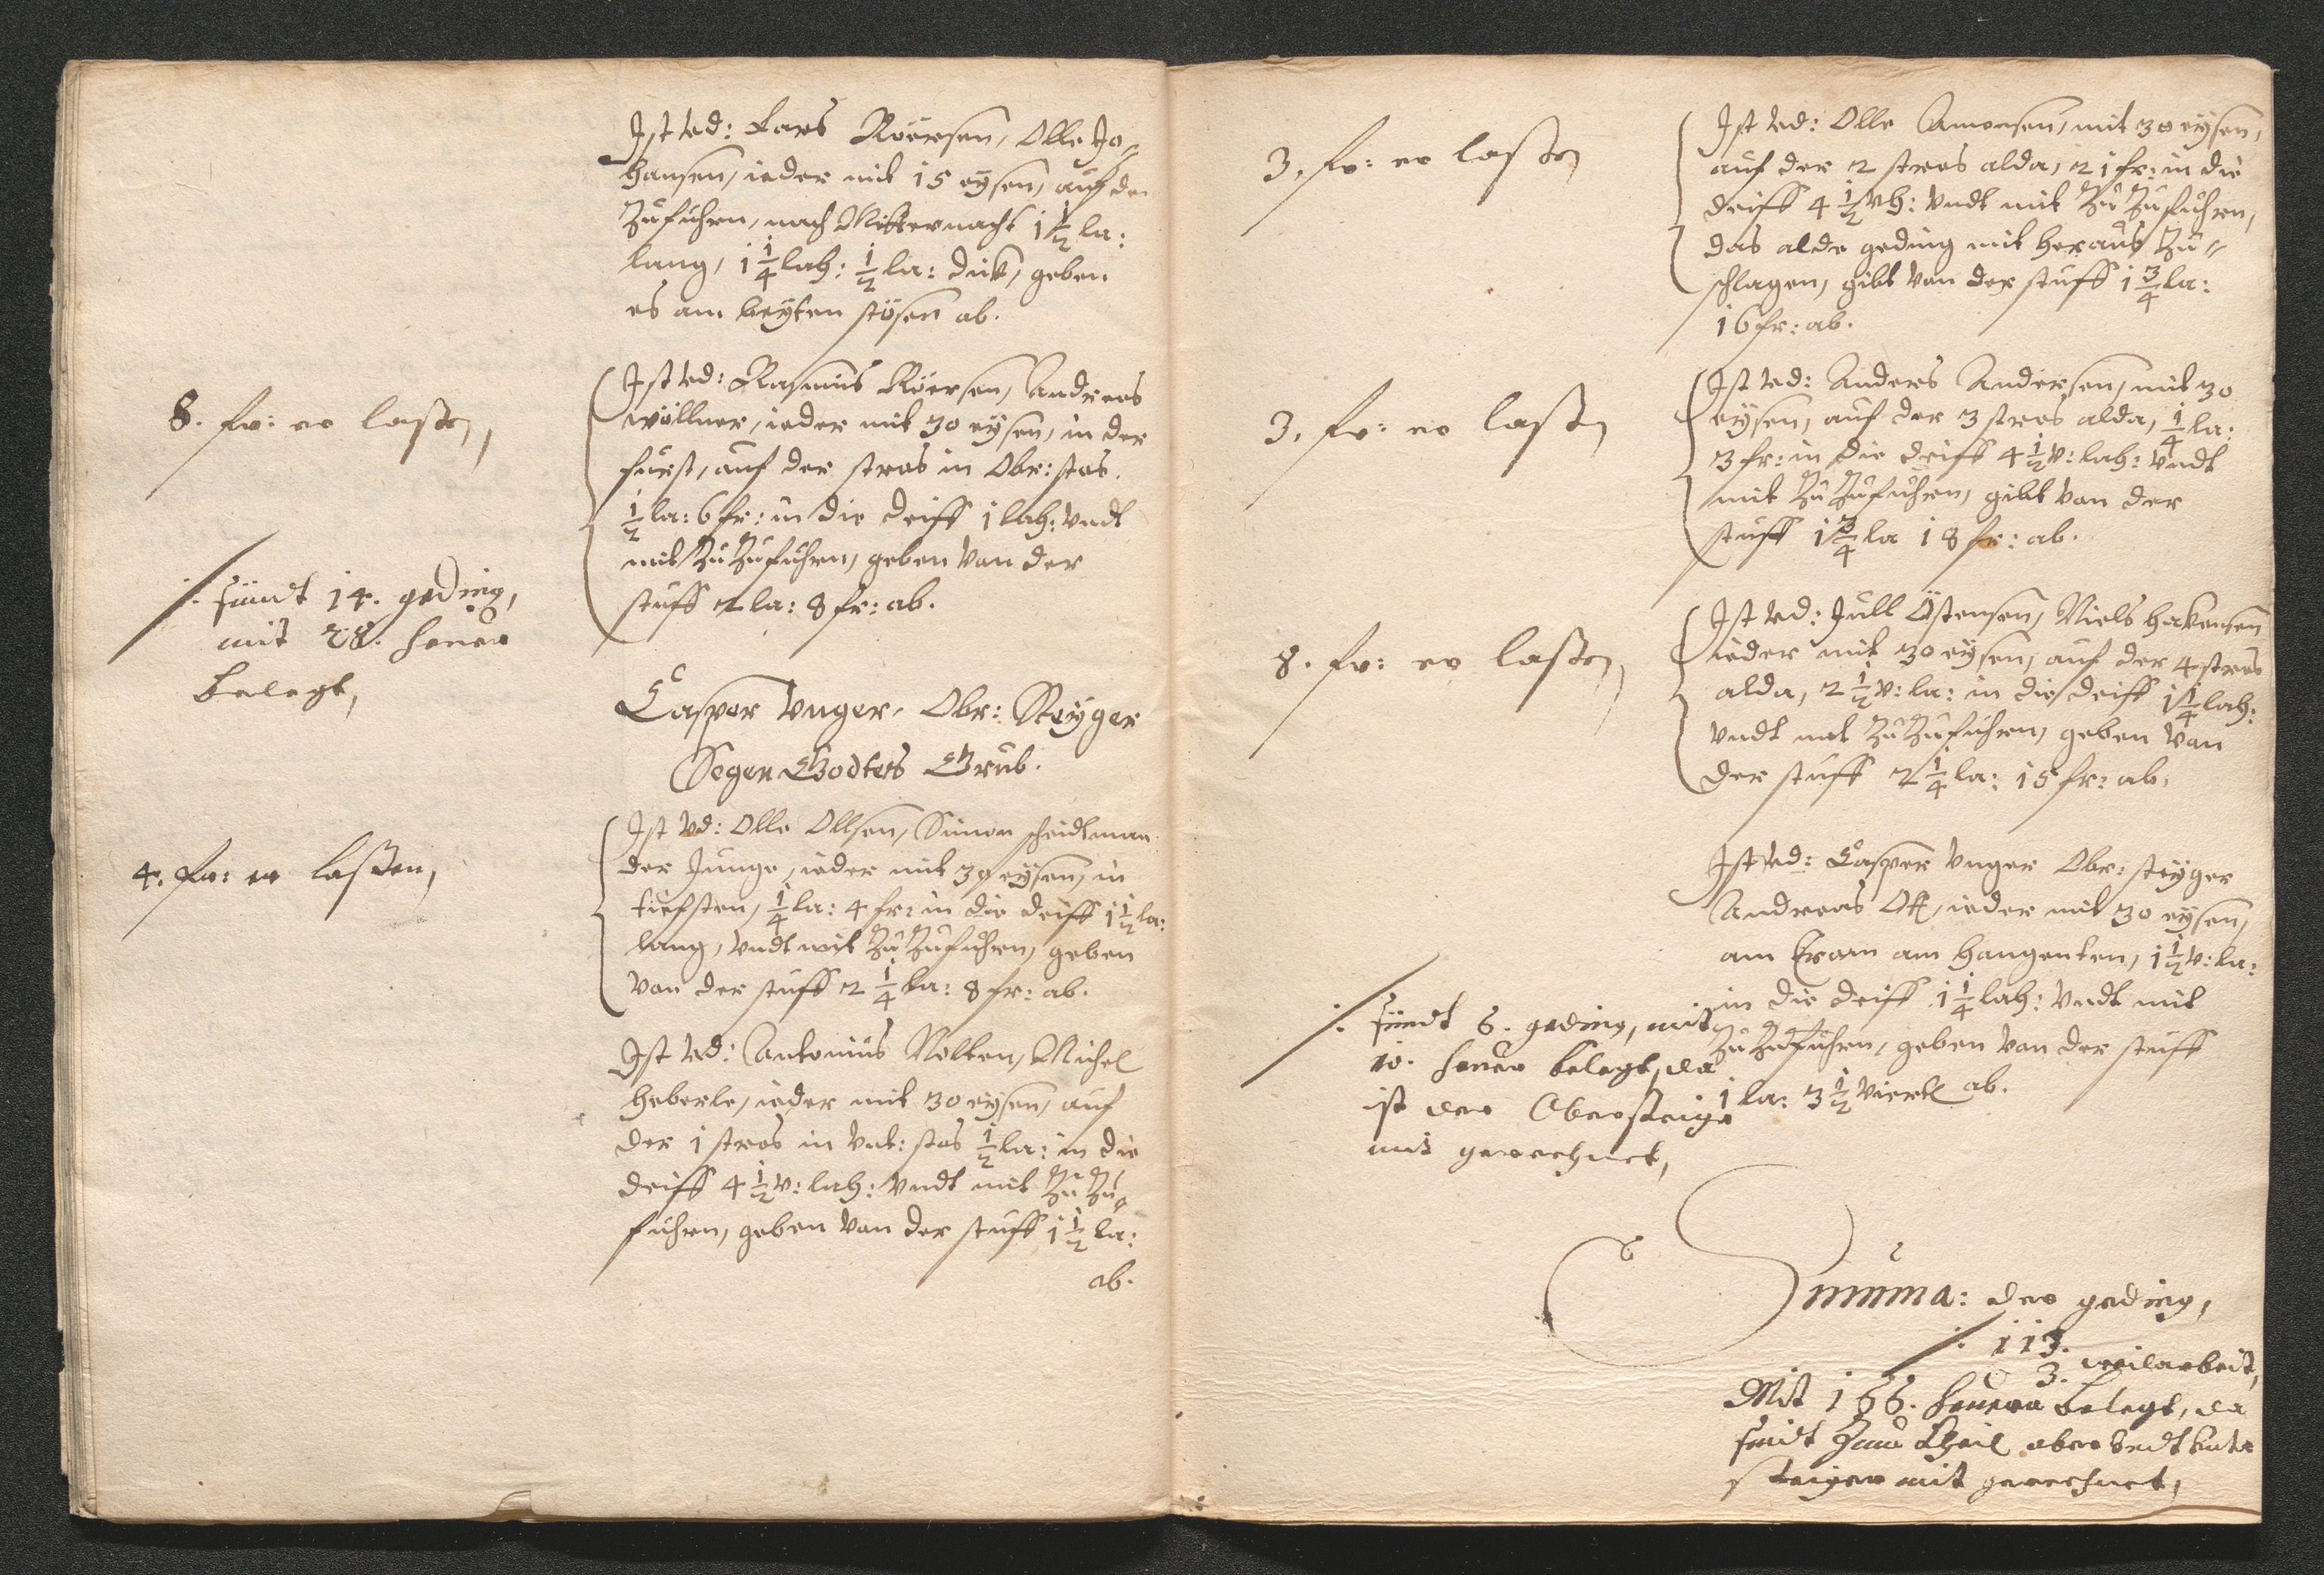 Ist Ved: Lars Roersen, Olle Jo=
hansen, ieder mit 15 eÿsen, auf der
Zufuhren, nach Mitternacht 1 1/2 la:
lang, 1 1/4 lah: 1/2 la: dick, geben
es am beÿten stösen ab.
8. fr: er lassen,
Ist Ved: Rasmus Roersen, Andreas
wöllner, ieder mit 30 eÿsen, in der
furst, auf der stros in Obr: stos.
1/2 la: 6 fr: in die deiff 1 lah: Vndt
mit Zu Zufuhren, geben Von der
stuff 2 la: 8 fr: ab.
/. sündt 14. geding,
mit 28. heuer
belegt,
Casper Vnger, Obr: Steÿger
Segen Godtes Grub.
4. fr: er lassen,
Ist Vd: Olle Ollsen, Simon scheidtman
der Junge, ieder mit 30 eÿsen, in
tiefsten, 1/4 la: 4 fr: in die deiff 1 1/2 la:
lang, Vndt mit Zu Zufuhren, geben
Von der stuff 2 1/4 la: 8 fr: ab.
Ist Ved: Antonius Nolten, Michel
heberle, ieder mit 30 eÿsen, auf
der 1 stros in Vnt: stos 1/2 la: in die
deiff 4 1/2 v: lah: Vndt mit Zu Zu=
fuhren, geben Von der stuff 1 1/2 la:
ab.
3. fr: er lassen
Ist Ved: Olle Amorsen, mit 30 eÿsen,
auf der 2 stros alda, 21 fr: in die
deiff 4 1/2 vh: Vndt mit Zu Zufuhren,
das alde geding mit heraus Zu=
schlagen, gibt Von der stuff 1 3/4 la:
16 fr: ab.
3. fr: er lassen
Ist Ved: Anders Andersen, mit 30
eÿsen, auf der 3 stros alda, 1/4 la:
3 fr: in die deiff 4 1/2 v: lah: Vndt
mit Zu Zufuhren, gibt Von der
stuff 1 3/4 la 18 fr: ab.
8. fr: er lassen,
Ist Ved: Jull Östensen, Niels hakensen
ieder mit 30 eÿsen, auf der 4 stros
alda, 2 1/2 v: la: in die deiff 1 1/4 lah:
Vndt mit Zu Zufuhren, geben Von
der stuff 2 1/4 la: 15 fr: ab.
Ist Ved: Casper Vnger Obr: steÿger
Andreas Ott, ieder mit 30 eÿsen,
am Cram am hangenten, 1 1/2 v: la:
in die deiff 1 1/4 lah: Vndt mit
Zu Zufuhren, geben Von der stuff
1 la: 3 1/2 Viertl ab.
/. sündt 6. geding, mit
10. heuer belegt, da
ist der Obersteiger
mit gerechnet,
Summa: der geding,
/. 113.
3. weilarbeit,
Mit 166. heuern belegt, da
sindt Zum theil ober Vndt Vnter
steiger mit gerechnet,